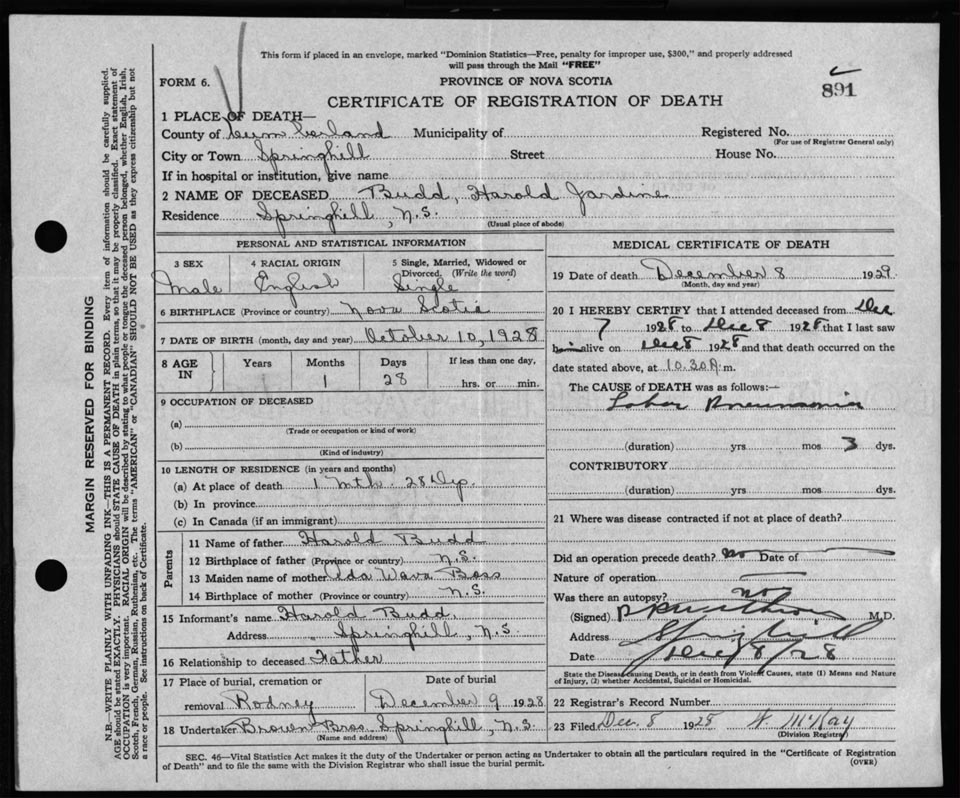 This form if placed in an envelope, marked "Dominion Statistics—Free, penalty for improper use, $300," and properly addressed
will pass through the Mail "FREE"
FORM 6.
PROVINCE OF NOVA SCOTIA
891
CERTIFICATE OF REGISTRATION OF DEATH
1 PLACE OF DEATH—
County of Cumberland Municipality of Registered No.
(For use of Registrar General only)
City or Town Springhill Street House No.
If in hospital or institution, give name
2 NAME OF DECEASED Budd, Harold Jardine
Residence Springhill, N.S.
(Usual place of abode)
PERSONAL AND STATISTICAL INFORMATION
3 SEX 4 RACIAL ORIGIN 5 Single, Married, Widowed or Divorced. (Write the word)
Male English Single
6 BIRTHPLACE (Province or country) Nova Scotia
7 DATE OF BIRTH (month, day and year) October 10, 1928
8 AGE IN Years Months Days If less than one day,
1 28 hrs. or min.
9 OCCUPATION OF DECEASED
(a)
(Trade or occupation or kind of work)
(b)
(Kind of industry)
10 LENGTH OF RESIDENCE (in years and months)
(a) At place of death 1 Mth. 28 Dys.
(b) In province
(c) In Canada (if an immigrant)
Parents
11 Name of father Harold Budd
12 Birthplace of father (Province or country) N.S.
13 Maiden name of mother Ida Wava Boss
14 Birthplace of mother (Province or country) N.S.
15 Informant's name Harold Budd
Address Springhill, N.S.
16 Relationship to deceased Father
17 Place of burial, cremation or Date of burial
removal Rodney December 9 1928
18 Undertaker Brown Bros. Springhill, N.S.
(Name and address)
MEDICAL CERTIFICATE OF DEATH
19 Date of death December 8 1929
(Month, day and year)
20 I HEREBY CERTIFY that I attended deceased from Dec
7 1928 to Dec 8 1928 that I last saw
him alive on Dec 8 1928 and that death occurred on the
date stated above, at 10.30 m.
The CAUSE of DEATH was as follows:—
Lobar Pneumonia
(duration) yrs mos 3 dys.
CONTRIBUTORY
(duration) yrs mos dys.
21 Where was disease contracted if not at place of death?
Did an operation precede death? No Date of
Nature of operation
Was there an autopsy? No
(Signed) M.D.
Address Springhill
Date Dec 8/28
State the Disease causing Death, or in death from Violent Causes, state (1) Means and Nature
of Injury, (2) whether Accidental, Suicidal or Homicidal.
22 Registrar's Record Number
23 Filed Dec. 8 1928 W. McKay
(Division Registrar)
SEC. 46—Vital Statistics Act makes it the duty of the Undertaker or person acting as Undertaker to obtain all the particulars required in the "Certificate of Registration
of Death" and to file the same with the Division Registrar who shall issue the burial permit.
(OVER)
MARGIN RESERVED FOR BINDING
N.B.—WRITE PLAINLY WITH UNFADING INK—THIS IS A PERMANENT RECORD. Every item of information should be carefully supplied.
AGE should be stated EXACTLY. PHYSICIANS should STATE CAUSE OF DEATH in plain terms, so that it may be properly classified. Exact statement of
OCCUPATION is very important. RACIAL ORIGIN will be described by stating to what people or tongue the deceased person belonged, whether English, Irish,
Scotch, French, German, Russian, Ruthenian, etc. The terms "AMERICAN" or "CANADIAN" SHOULD NOT BE USED as they express citizenship but not
a race or people. See instructions on back of Certificate.